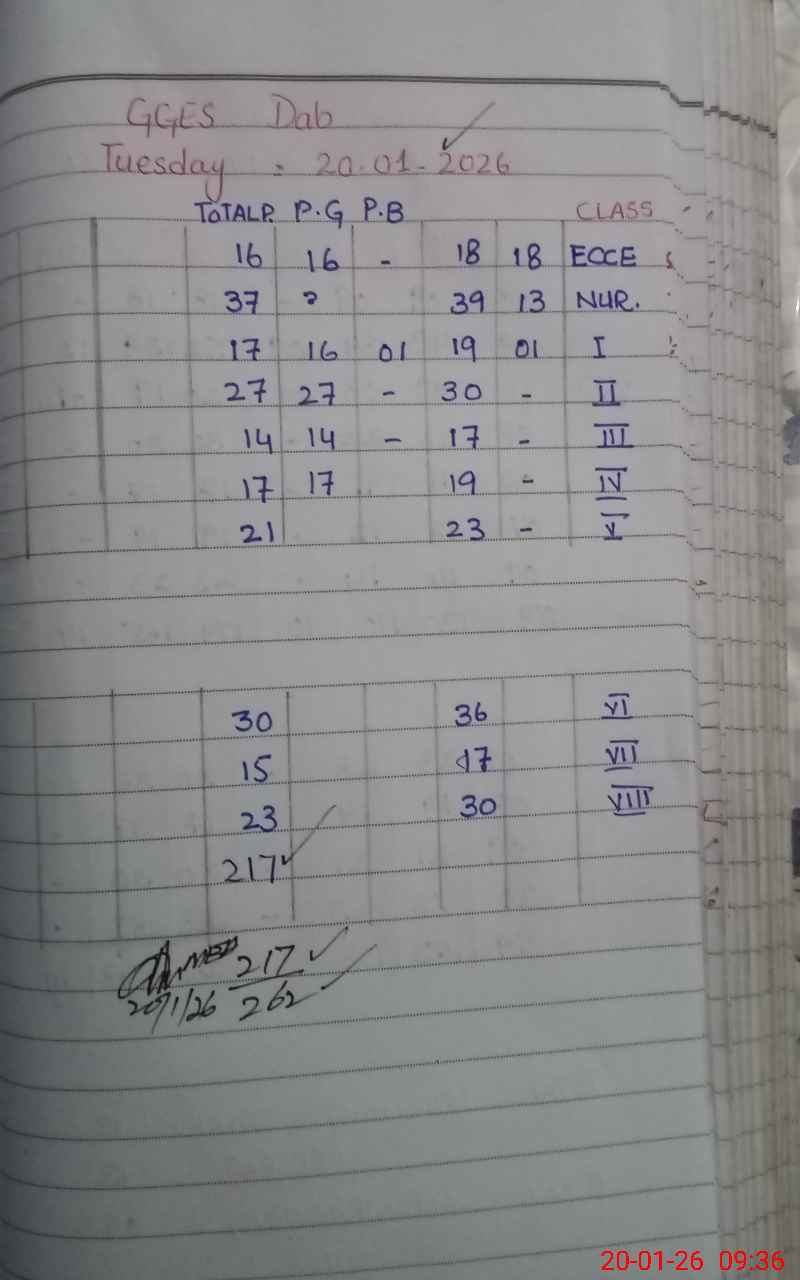 GGES Dab
Tuesday : 20.01-2026
TOTALP. P.G P.B CLASS
16 16 - 18 18 ECCE
37 ? 39 13 NUR.
17 16 01 19 01 I
27 27 - 30 - II
14 14 - 17 - III
17 17 19 - IV
21 23 - V
30 36 VI
15 17 VII
23 30 VIII
217
217
20/1/26 262
20-01-26 09:36